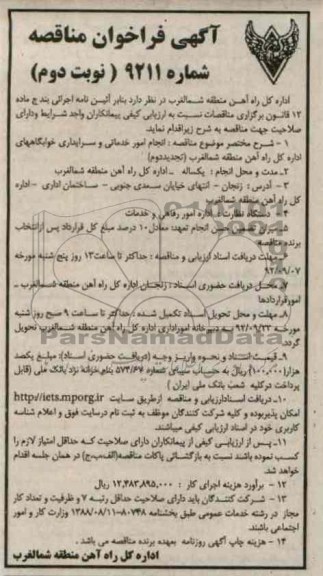 آگهی فراخوان مناقصه
شماره ۹۲۱۱ ( نوبت دوم )
اداره کل راه آهن منطقه شمالغرب در نظر دارد بنابر آئین نامه اجرائی بند ج ماده
۱۲ قانون برگزاری مناقصات نسبت به ارزیابی کیفی پیمانکاران واجد شرایط ودارای
صلاحیت جهت مناقصه به شرح زیراقدام نماید.
۱ – شرح مختصر موضوع مناقصه : انجام امور خدماتی و سرایداری خوابگاههای
اداره کل راه آهن منطقه شمالغرب (تجدیددوم)
۲ـ مدت و محل انجام : یکساله ـ اداره کل راه آهن منطقه شمالغرب
۳ – آدرس : زنجان – انتهای خیابان سعدی جنوبی – ساختمان اداری –اداره
کل راه آهن منطقه شمالغرب
۴ – دستگاه نظارت : اداره امور رفاهی و خدمات
۵ – میزان تضمین حسن انجام تعهد: معادل۱۰ درصد مبلغ کل قرارداد پس ازانتخاب
برنده مناقصه
۶ – مهلت دریافت اسناد ارزیابی و مناقصه : حداکثر تا ساعت۱۳ روز پنج شنبه مورخه
۹۲/۰۹/۰۷
۷ـ محل دریافت حضوری اسناد : زنجان، اداره کل راه آهن منطقه شمالغرب ـ
امورقراردادها
۸ـ مهلت و محل تحویل اسناد تکمیل شده : حداکثر تا ساعت ۹ صبح روز شنبه
مورخه ۹۲/۰۹/۲۳ به دبیرخانه اموراداری اداره کل راه آهن منطقه شمالغرب تحویل
گردد.
۹ـ قیمت اسناد و نحوه واریز وجه (دریافت حضوری اسناد): مبلغ یکصد
هزار(۱۰۰،۰۰۰) ریال به حساب سیبای شماره بنام خزانه نزد بانک ملی (قابل
پرداخت درکلیه شعب بانک ملی ایران )
۱۰ـ دریافت اسنادارزیابی و مناقصه ازطریق سایت http//iets.mporg.ir
امکان پذیربوده و کلیه شرکت کنندگان موظف به ثبت نام درسایت فوق و اعلام شناسه
کاربری خود در اسناد ارزیابی کیفی میباشند.
۱۱ـ پس از ارزیابی کیفی از پیمانکاران دارای صلاحیت که حداقل امتیاز لازم را
کسب نموده باشند نسبت به بازگشائی پاکات مناقصه(الف،ب،ج) در همان جلسه اقدام
خواهد شد.
۱۲ – برآورد هزینه اجرای کار : ۱۲،۴۸۳،۸۹۵،۰۰۰ ریال
۱۳ – شرکت کنندگان باید دارای صلاحیت حداقل رتبه ۷ و ظرفیت و تعداد کار
مجاز در رشته خدمات عمومی طبق بخشنامه ۸۰۷۴۸–۱۳۸۸/۰۸/۱۱ وزارت کار و امور
اجتماعی باشند.
۱۴ – هزینه چاپ آگهی روزنامه بعهده برنده مناقصه می باشد .
اداره کل راه آهن منطقه شمالغرب